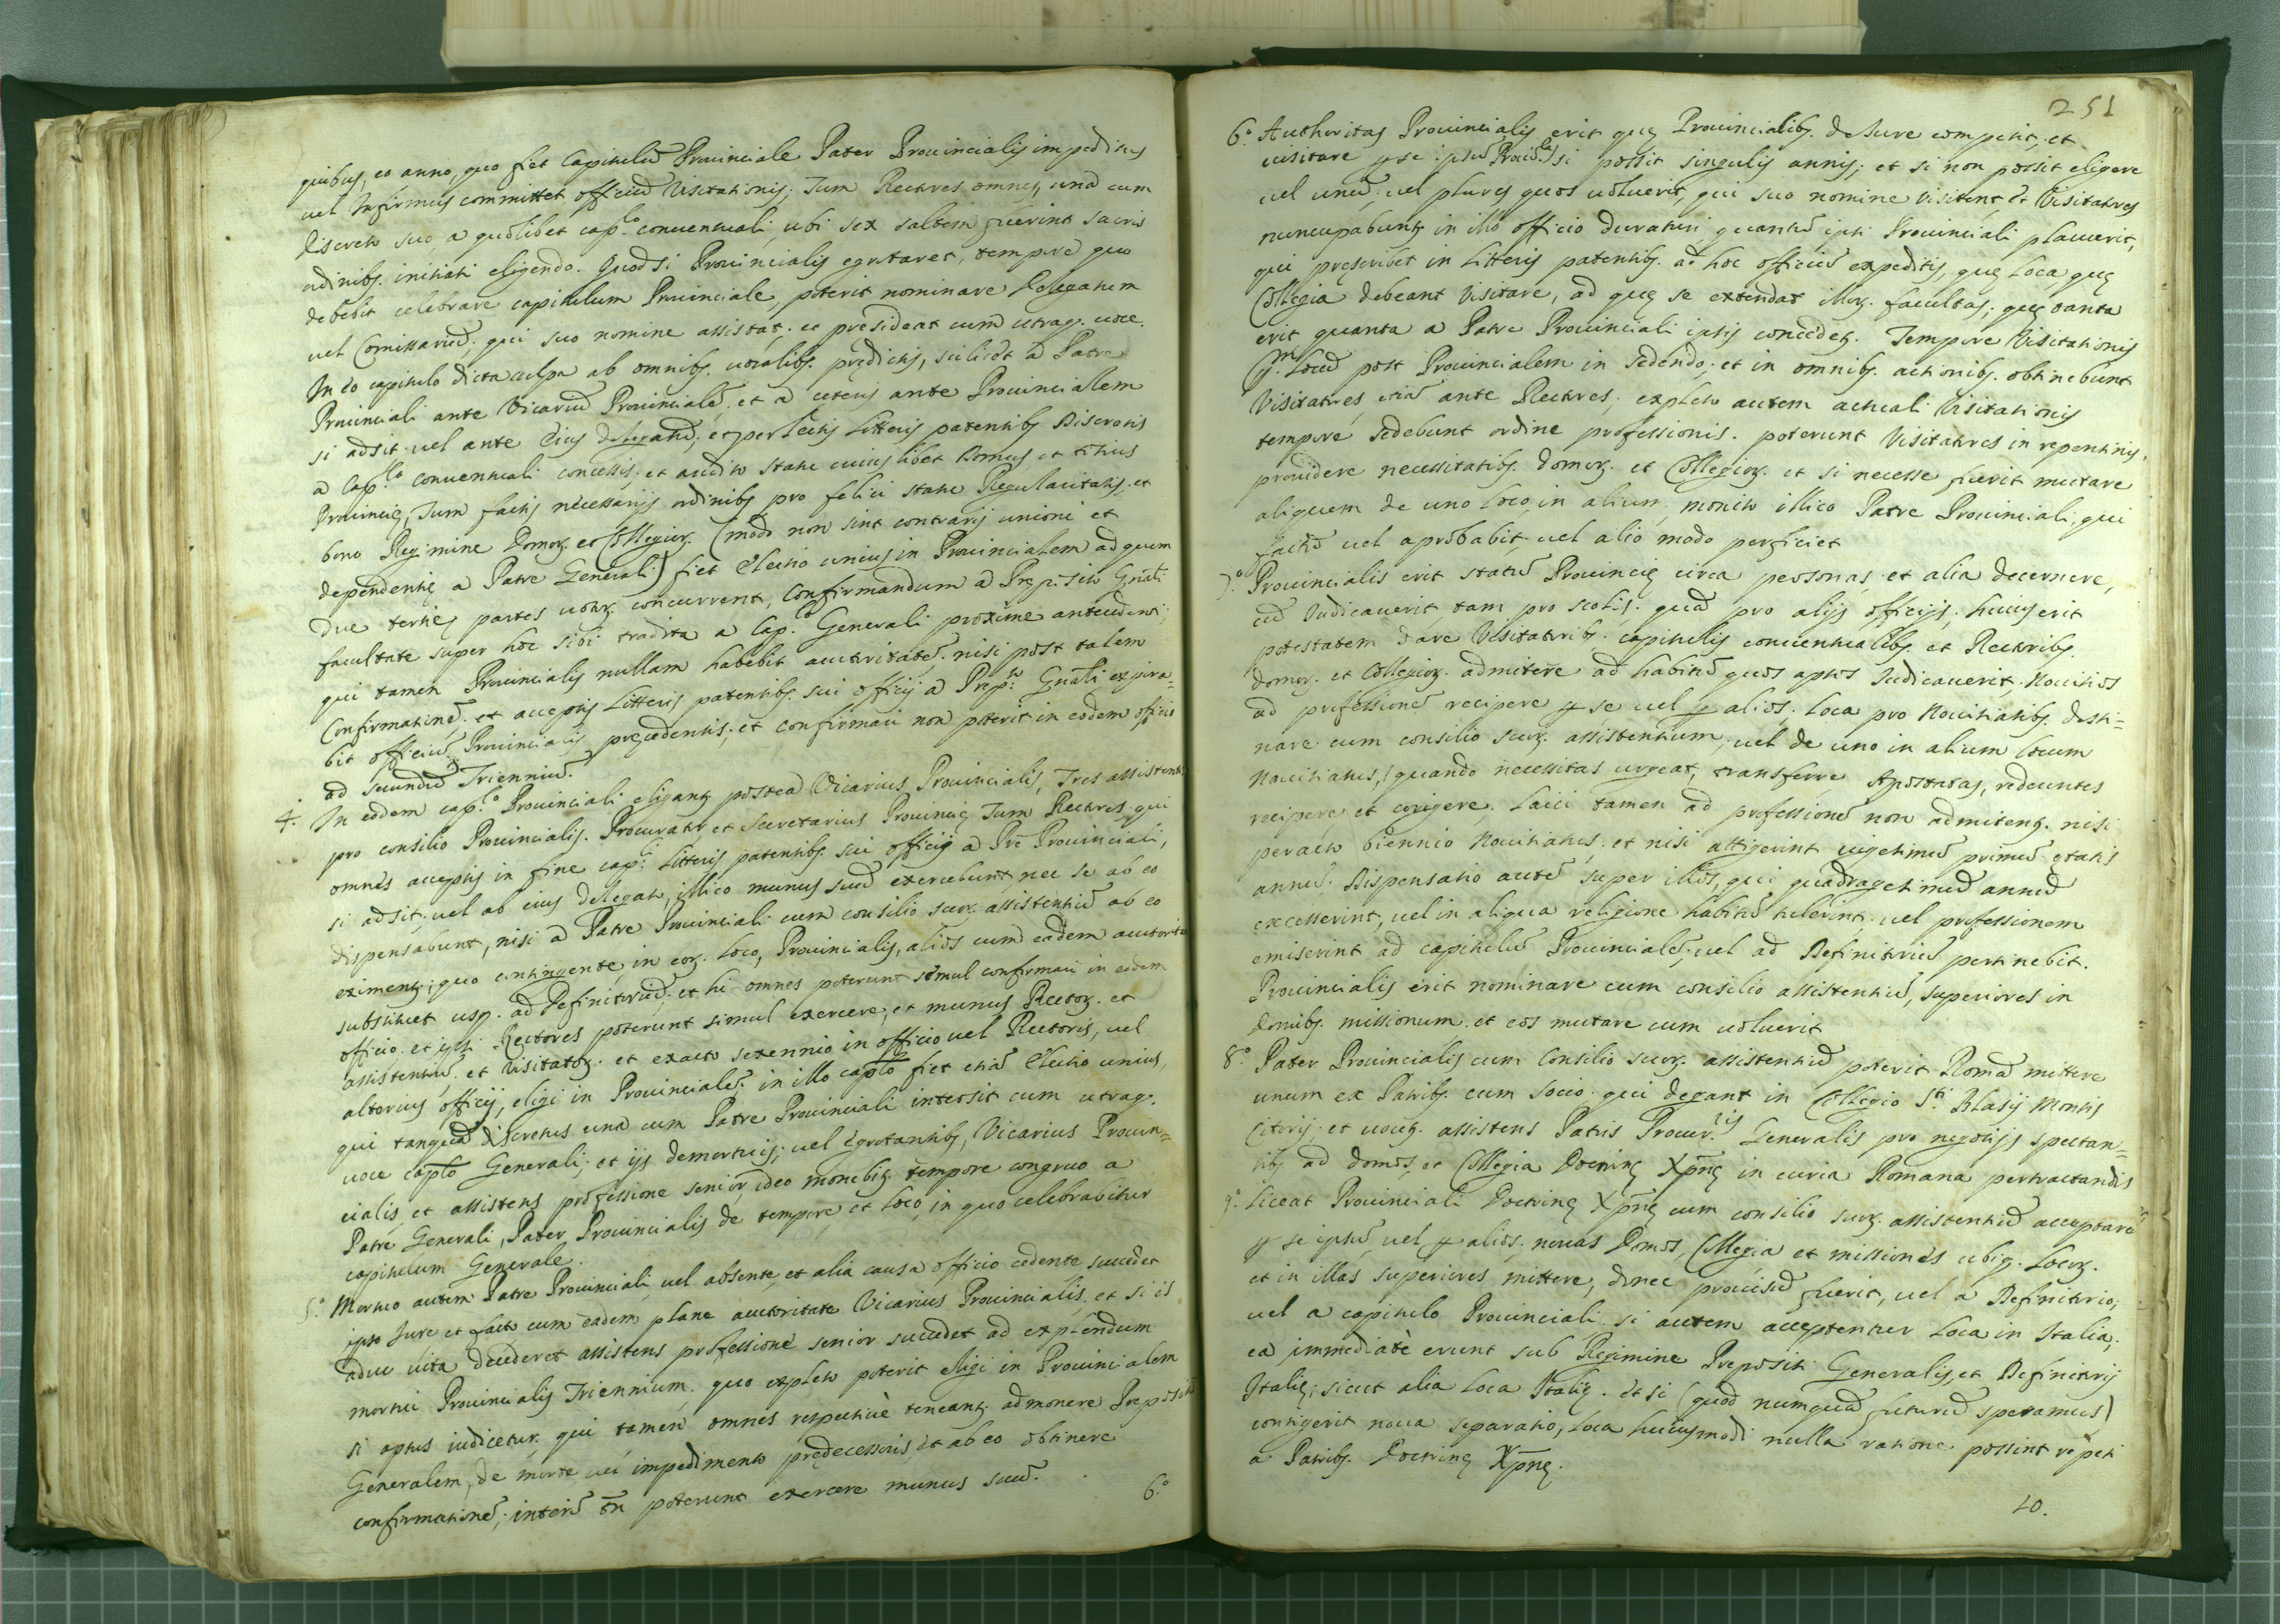 quibus, eo anno, quo fiet Capitulũ Prouinciale Pater Prouincialis impeditus
uel Infirmus committet officiũ Visitationis; Tum Rectores omnes, unà cum
discreto suo a quolibet cap.lo conuentuali, ubi sex saltem fuerint sacris
ordinibꝫ initiati eligendo. Quod si Prouincialis egrotaret, tempore quo
debebit celebrare capitulum Prouinciale, poterit nominare Delegatum
uel Comissariũ, qui suo nomine assistat, et presideat cum utraqꝫ uoce.
In eo capitulo dicta culpa ab omnibꝫ uocalibꝫ prędictis, scilicet a Patre
Prouinciali ante Vicariũ Prouincialẽ, et a ceteris ante Prouincialem
si adsit, uel ante Eius delegatũ; et perlectis Litteris patentibꝫ Discretis
a Cap.lo conuentuali concessis, et audito statu cuiuslibet Domus, et totius
Prouincię, Tum factis necessarijs ordinibꝫ pro felici statu Regularitatis, et
bono Regimine Domoꝝ. et Collegioꝝ. (modo non sint contrarij unioni et
dependentię a Patre Generali) fiet Electio unius in Prouincialem ad quem
due tertię partes uotoꝝ. concurrent, Confirmandum a Prępisito Gnãli
facultate super hoc sibi tradita a Cap.lo Generali proxime antecedenti;
qui tamen Prouincialis nullam habebit auctoritatẽ. nisi post talem
Confirmationẽ, et acceptis Litteris patentibꝫ sui officij a Prep.to Gnãli expira-
bit officiũ Prouincialis pręcedentis, et confirmari non poterit in eodem officio
ad secundũ Trienniũ.
4. In eodem cap.lo Prouinciali eligantꝫ postea Vicarius Prouincialis, Tres assistentes
pro consilio Prouincialis. Procurator et Secretarius Prouincię Tum Rectores, qui
omnes acceptis in fine cap.li Litteris patentibꝫ sui officij a Prẽ Prouinciali,
si adsit, uel ab eius delegato, illico munus suũ exercebunt, nec se ab eo
dispensabunt, nisi a Patre Prouinciali cum consilio suoꝝ. assistentiũ ab eo
eximentꝫ; quo contingente in eoꝝ. loco, Prouincialis, alios cum eadem auctoritate
substituet usqꝫ ad Definitoriũ, et hi omnes poterunt simul confirmari in eodem
officio, et ipsi Rectores poterunt simul exercere, et munus Rectoꝝ. et
assistentiũ, et Visitatoꝝ. et exacto sexennio in officio uel Rectoris, uel
alterius officij, eligi in Prouincialẽ. in illo capto fiet etiã Electio unius,
qui tanquã discretus una cum Patre Prouinciali intersit cum utraqꝫ
uoce capto Generali; et ijs demortuis, uel egrotantibꝫ, Vicarius Prouin=
cialis, et assistens professione senior, ideo monebitꝫ tempore congruo a
Patre Generali, Pater Prouincialis de tempore et loco, in quo celebrabitur
capitulum Generale.
5.o Mortuo autem Patre Prouinciali, uel absente, et alia causa officio cedente succedet
ipso Jure et facto, cum eadem plane auctoritate Vicarius Prouincialis, et si is
aduc uita decederet assistens professione senior succedet ad explendum
mortui Prouincialis Triennium, quo expleto poterit eligi in Prouincialem
si aptus iudicetur, qui tamen omnes respectiuè teneantꝫ admonere Prepositũ
Generalem, de morte, uel impedimento prędecessoris, et ab eo obtinere
confirmationẽ; interĩ tñ poterunt exercere munus suũ.
6.o
251
6.o Authoritas Prouincialis erit quę Prouincialibꝫ de Jure competit, et
uisitare ꝑ se ipsũ Prouĩc.le) si possit singulis annis; et si non possit eligere
uel unũ, uel plures quos uoluerit, qui suo nomine Visitent, et Visitatores
nuncupabuntꝫ in illo officio duraturi, quantũ ipsi Prouinciali placuerit,
qui pręscribet in Litteris patentibꝫ ad hoc officiũ expeditis, quę Loca, quę
Collegia debeant Visitare, ad quę se extendat illoꝝ. facultas; quę tanta
erit quanta a Patre Prouinciali ipsis concedetꝫ. Tempore Visitationis
p.m locũ post Prouincialem in sedendo, et in omnibꝫ actionibꝫ obtinebunt
Visitatores, etiã ante Rectores; expleto autem actuali Visitationis
tempore sedebunt ordine professionis. poterunt Visitatores in repentinis,
prouidere necessitatibꝫ domoꝝ. et Collegioꝝ. et si necesse fuerit mutare
aliquem de uno loco in alium, monito illico Patre Prouinciali, qui
factũ uel aprobabit, uel alio modo perficiet
7.o Prouincialis erit statũ Prouincię circa personas, et alia decernere,
cũ Iudicauerit, tam pro scolis, quã pro alijs officijs; huius erit
potestatem dare Visitatoribꝫ, capitulis conuentualibꝫ et Rectoribꝫ
domoꝝ. et Collegioꝝ. admitere ad habitũ quos aptos Iudicauerit, Nouitios
ad professionẽ recipere ꝑ se uel ꝑ alios. Loca pro Nouitiatibꝫ desti=
nare cum consilio suoꝝ. assistentium, uel de uno in alium locum
Nouitiatus, (quando necessitas urgeat, transferre Apostatas, redeuntes
recipere et corigere. Laici tamen ad professionẽ non admitentꝫ. nisi
peracto biennio Nouitiatus, et nisi attigerint uigesimũ primũ ętatis
annũ. Dispensatio autẽ super illos, qui quadragesimũ annũ
excesserint, uel in aliqua religione habitũ tulerint, uel professionem
emiserint ad capitulũ Prouincialẽ, uel ad Definitoriũ pertinebit.
Prouincialis erit nominare cum consilio assistentiũ, superiores in
Domibꝫ missionum, et eos mutare cum uoluerit
8.o Pater Prouincialis cum Consilio suoꝝ. assistentiũ poterit Romã mittere
unum ex Patribꝫ cum socio, qui degant in Collegio S.ti Blasij Montis
Citorij, et uocetꝫ. assistens Patris Procur.ris Generalis pro negotijs spectan=
tibꝫ ad domos, et Collegia Doctrinę Xpñę in curia Romana pertractandis
9.o Liceat Prouinciali Doctrinę Xpñę cum consilio suoꝝ. assistentiũ acceptare
ꝑ se ipsũ, uel ꝑ alios, nouas Domos, Collegia et missiones ubiqꝫ. Locoꝝ.
et in illas superiores mittere, donec prouisũ fuerit, uel a Definitorio,
uel a capitulo Prouinciali, si autem acceptentur Loca in Italia,
ea immediatè erunt sub Regimine Prepositi Generalis, et Definitorij
Italię, sicut alia Loca Italię. et si (quod numquã futurũ speramus)
contigerit noua separatio, Loca huiusmodi nulla ratione possint repeti
a Patribꝫ. Doctrinę Xpñę.
10.